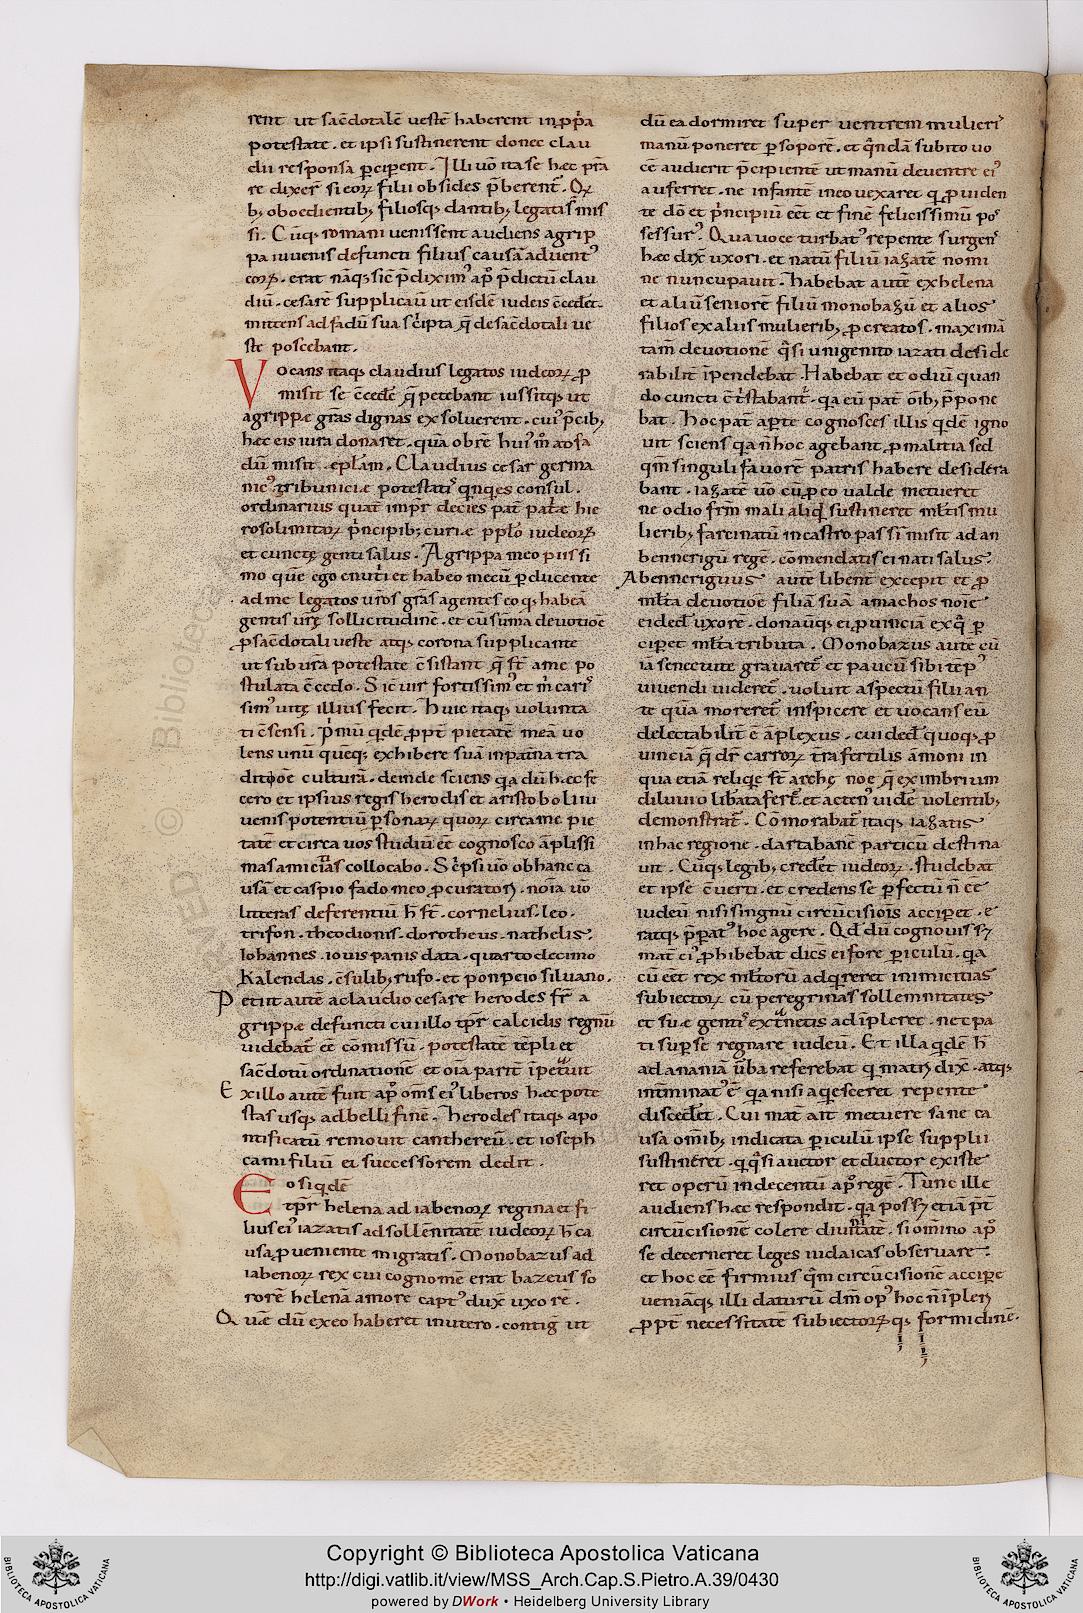 rent ut sac̄dotalē uestē haberent in ꝓp̄a
potestate . et ipsi sustinerent donec clau
dii responsa ꝑciꝑent . Illi uō ita se hæc p̄ra
re dixer̄ si eoꝝ filii obsides p̄berent̄ . Qꝫ
bꝫ oboedientibꝫ filiosqꝫ dantibꝫ legatis mis
si . Cūqꝫ romani uenissent audiens agrip
pa iuuenis defuncti filius causā aduent᾽
eoꝝ . erat nāqꝫ sic̄ p̄dixim᾽ ap̄ p̄dictū clau
diū . cesarē supplicauit ut eisdē iudeis c̄cedet̄ .
mittens ad fadū sua sc̄ipta q̄ de sac̄dotali ue
ste poscebant .
Vocans itaqꝫ claudius legatos iudeoꝝ ꝓ
misit se c̄cedē q̄ petebant iussitqꝫ ut
agrippæ grās dignas exsoluerent . cui᾽ p̄cibꝫ
hæc eis iura donaret . quā ob rē hui᾽ m̄ ad fa
dū misit . eplām . Claudius cesar germa
nic᾽ tribuniciæ potestati᾽ qnqes consul .
ordinarius quat̄ impr̄ decies pat̄ pat̄æ hie
rosolimitaꝝ p̄ncipibꝫ curiæ ppl̄o iudeoꝝ
et cunctę genti salus . Agrippa meo piissi
mo quē ego enut̄i et habeo mecū ꝑducente
ad me legatos ur̄os grās agentes eo qꝫ habeā
gentis ur̄ę sollicitudinē . et cū sūma deuotioē
ꝓ sac̄dotali ueste atqꝫ corona supplicante
ut sub ur̄a potestate c̄sistant q̄ st̄ a me po
stulata c̄cedo . Sic uir fortissim᾽ et m̄ cari᾽
sim᾽ uitę illius fecit . Huic itaqꝫ uolunta
ti c̄sensi . P̄mū qdē ꝓpt̄ pietatē meā uo
lens unū quēqꝫ exhibere suā in patn̄a tra
ditōoē culturā . deinde sciens qa dū hæc fe
cero et ipsius regis herodis et aristoboli iu
uenis potentiū ꝑsonaꝝ quoꝝ circa me pie
tatē et circa uos studiū eē cognosco āplissi
mas amicitias collocabo . Sc̄psi uō ob hanc ca
usā et caspio fado meo ꝓcuratori . noīa uō
litteras deferentiū h̄ st̄ . cornelius . leo .
trifon . theodionis . dorotheus . nathelis .
Iohannes . iouis panis data . quarto decimo
Kalendas . c̄sulibꝫ rufo . et ponpeio siluano .
Petiit autē a claudio cesare herodes fr̄ a
grippæ defuncti cui illo tp̄r calcidis regnū
uidebat̄ eē cōmissū . potestatē tēpli et
sac̄dotū ordinationē et oīa parit̄ īpetuit
Ex illo autē fuit ap̄ om̄s ei᾽ liberos hæc pote
stas usqꝫ ad belli finē . Herodes itaqꝫ apo
ntificatū remouit canthereū . et ioseph
cami filiū ei successorem dedit .
Eosiqdē
tp̄r helena adiabenoꝝ regina et fi
lius ei᾽ iazatis ad sollēnitatē iudeoꝝ h̄ ca
usa ꝓueniente migratis . Monobazus ad
iabenoꝝ rex cui cognomē erat bazeus so
rorē helenā amore capt᾽ dux̄ uxorē .
Quæ dū ex eo haberet in utero . contiḡ ut
dū ea dormiret super uentrem mulieri᾽
manū poneret ꝑ soporē . et q̄ndā subito uo
cē audierit p̄cipientē ut manū de uentre ei᾽
auferret . ne infantē in eo uexaret q ꝓuiden
te dō et p̄ncipiū eēt et finē felicissimū po᾽
sessur᾽ . Qua uoce turbat᾽ repente surgen᾽
hæc dix̄ uxori . et natū filiū iazatē nomi
ne nuncupauit . habebat autē ex helena
et aliū seniorē filiū monobazū et alios
filios ex aliis mulieribꝫ ꝓcreatos . maximā
tam̄ deuotionē q̄si unigenito iazati deside
rabilit̄ īpendebat . Habebat et odiū quan
do cuncti c̄t̄stabant̄ . qa eū pat̄ ōibꝫ p̄pone
bat . Hoc pat̄ aꝑte cognosces illis qdē igno
uit sciens qa n̄ hoc agebant ꝓ malitia sed
qm̄ singuli fauorē patris habere desidera
bant . iazatē uō cū ꝓ eo ualde metueret
ne odio frm̄ mali aliqd̄ sustineret ml̄tis mu
lieribꝫ farcinatū in castro passim̄ misit ad an
bennerigū regē . cōmendatis ei nati salus᾽
Abennerigus᾽ autē libent̄ excepit et ꝓ
ml̄ta deuotiōe filiā suā amachos noīe
ei dedi᾽ uxorē . donauitqꝫ ei ꝓuinciā ex q̄ ꝑ
ciꝑet ml̄ta tributa . Monobazus autē cū
iā senectute grauaret̄ et paucū sibi tēp᾽
uiuendi uideret̄ . uoluit aspectū filii an
te quā moreret̄ inspicere et uocans eū
delectabilit̄ ē āplexus . cui ded̄ quoqꝫ ꝓ
uinciā q̄ dr̄ carroꝝ tr̄ra fertilis āmoni in
qua etiā reliqiæ st̄ archę noe q̄ ex imbrium
diluuio lib̄ata fert̄ . et acten᾽ uidē uolentibꝫ
demonstrat̄ . Cōmorabat̄ itaqꝫ iazatis
in hac regione . da artabane particū destina
uit . Cūqꝫ legibꝫ credēt iudeoꝝ . studebat
et ipse c̄uerti . et credens se ꝑfectū n̄ eē
iudeū nisi signū circūcisiōis acciꝑet . e
ratqꝫ p̄pat᾽ hoc agere . Qd̄ dū cognouissꝫ
mat̄ ei᾽ ꝓhibebat dicēs ei fore ꝑiculū . qa
cū eēt rex ml̄torū adqreret inimicitias
subiectoꝝ cū peregrinas sollemnitates
et suæ genti᾽ extr̄neas adīpleret . nec pa
ti suꝑ se regnare iudeū . Et illa qdē h̄
ad ananiā ūba referebat q matri dix̄ . atqꝫ
imminat᾽ ē qa nisi aqesceret repente
discedet̄ . Cui mat̄ ait metuere sane ca
usa omībꝫ indicata ꝑiculū ipse supplii
sustineret . q q̄si auctor et ductor existe
ret operū indecentū ap̄ regē . Tunc ille
audiens hæc respondit . qa possꝫ etiā p̄t̄
circūcisionē colere diuinitatē . si omīno ap̄
se decerneret leges iudaicas obseruare .
et hoc eē firmius q̄m circūcisionē acciꝑe
ueniāqꝫ illi daturū dm̄ op᾽ hoc n̄ īpleri
ꝓpt̄ necessitatē subiectoꝝqꝫ formidinē .
Copyright © Biblioteca Apostolica Vaticana
http://digi.vatlib.it/view/MSS_Arch.Cap.S.Pietro.A.39/0430
powered by DWork • Heidelberg University Library
BIBLIOTECA APOSTOLICA VATICANA
BIBLIOTECA APOSTOLICA VATICANA